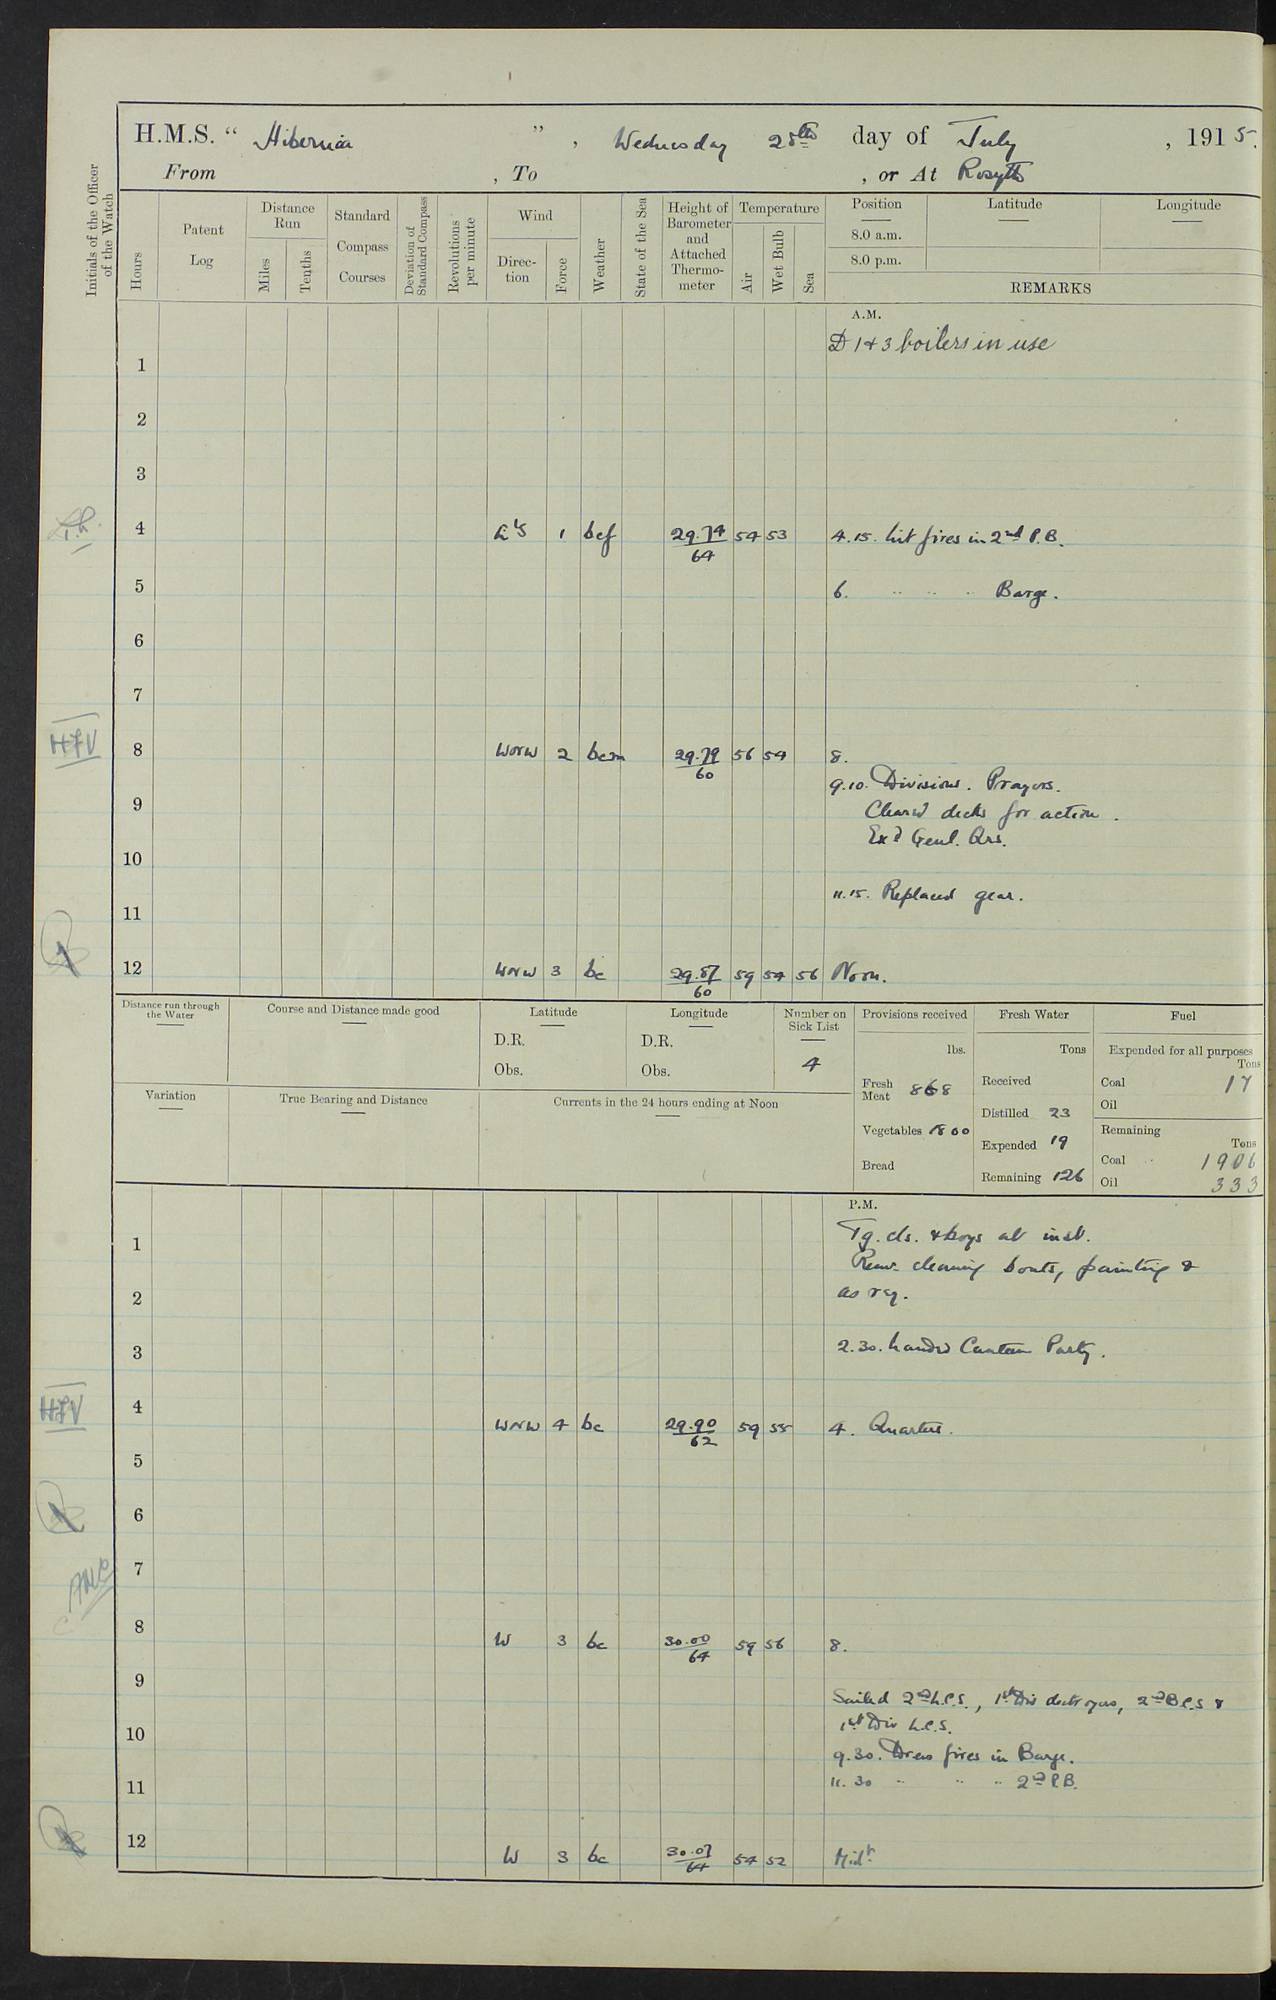 H.M.S. “ Hibernia ” , Wednesday 28th day of July , 1915.
From , To , or At Rosyth
Initials of the Officer of the Watch
Hours Patent Log Distance Run Miles Tenths Standard Compass Courses Deviation of Standard Compass Revolutions per minute Wind Direc-tion Force Weather State of the Sea Height of Barometer and Attached Thermo-meter Temperature Air Wet Bulb Sea Position Latitude Longitude
8.0 a.m.
8.0 p.m.
REMARKS
A.M.
D 1 & 3 boilers in use
1
2
3
4 E'ly 1 bcf 29.74/64 54 53 4.15. Lit fires in 2nd P.B.
5 6. " " " Barge.
6
7
HFV
8 WNW 2 bcm 29.79/60 56 54 8.
9.10. Divisions. Prayers.
9 Clear'd decks for action.
Ex'd Genl. Qrs.
10
11.15. Replaced gear.
11
12 WNW 3 bc 29.87/60 59 54 56 Noon.
Distance run through the Water Course and Distance made good Latitude Longitude Number on Sick List Provisions received Fresh Water Fuel
D.R. D.R. lbs. Tons Expended for all purposes Tons
Obs. Obs. 4 Fresh Meat 868 Received Coal 17
Variation True Bearing and Distance Currents in the 24 hours ending at Noon Distilled 23 Oil
Vegetables 1800 Expended 19 Remaining Tons
Bread Remaining 126 Coal 1906
Oil 333
P.M.
Tg. cls. & boys at inst.
1 Remr cleaning boats, painting &
2 as req.
3 2.30. Landed Canteen Party.
HFV
4 WNW 4 bc 29.90/62 59 55 4. Quarters.
5
6
7
8 W 3 bc 30.00/64 59 56 8.
9 Sailed 2nd L.C.S., 1st Div destroyers, 2nd B.C.S &
10 1st Div L.C.S.
9.30. Drew fires in Barge.
11 11.30 " " " 2nd P.B.
12 W 3 bc 30.07/64 54 52 Midt